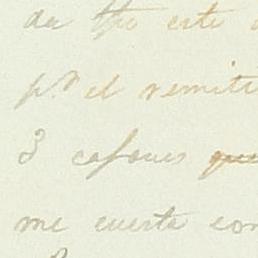 de este
p.r el remite
3 cajones que
me cuesta con